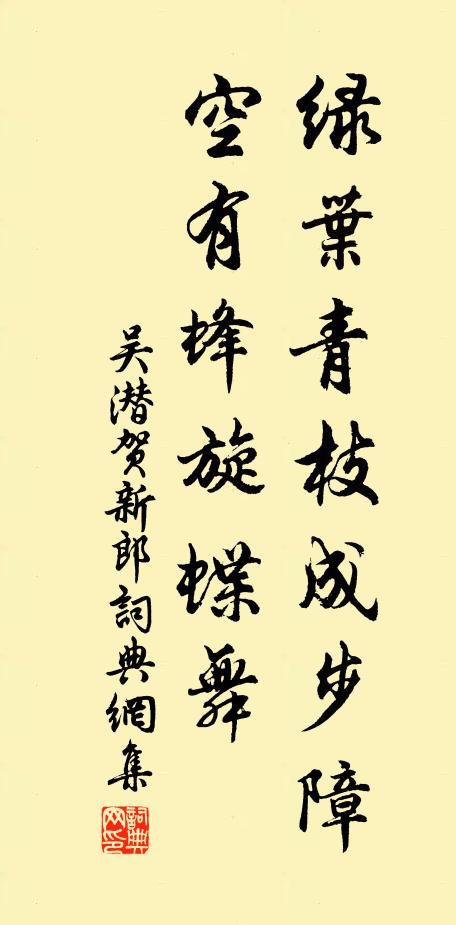 绿葉青枝成步障
空有蜂旋蝶舞
吴潜贺新郎詞典網集
詞典网印